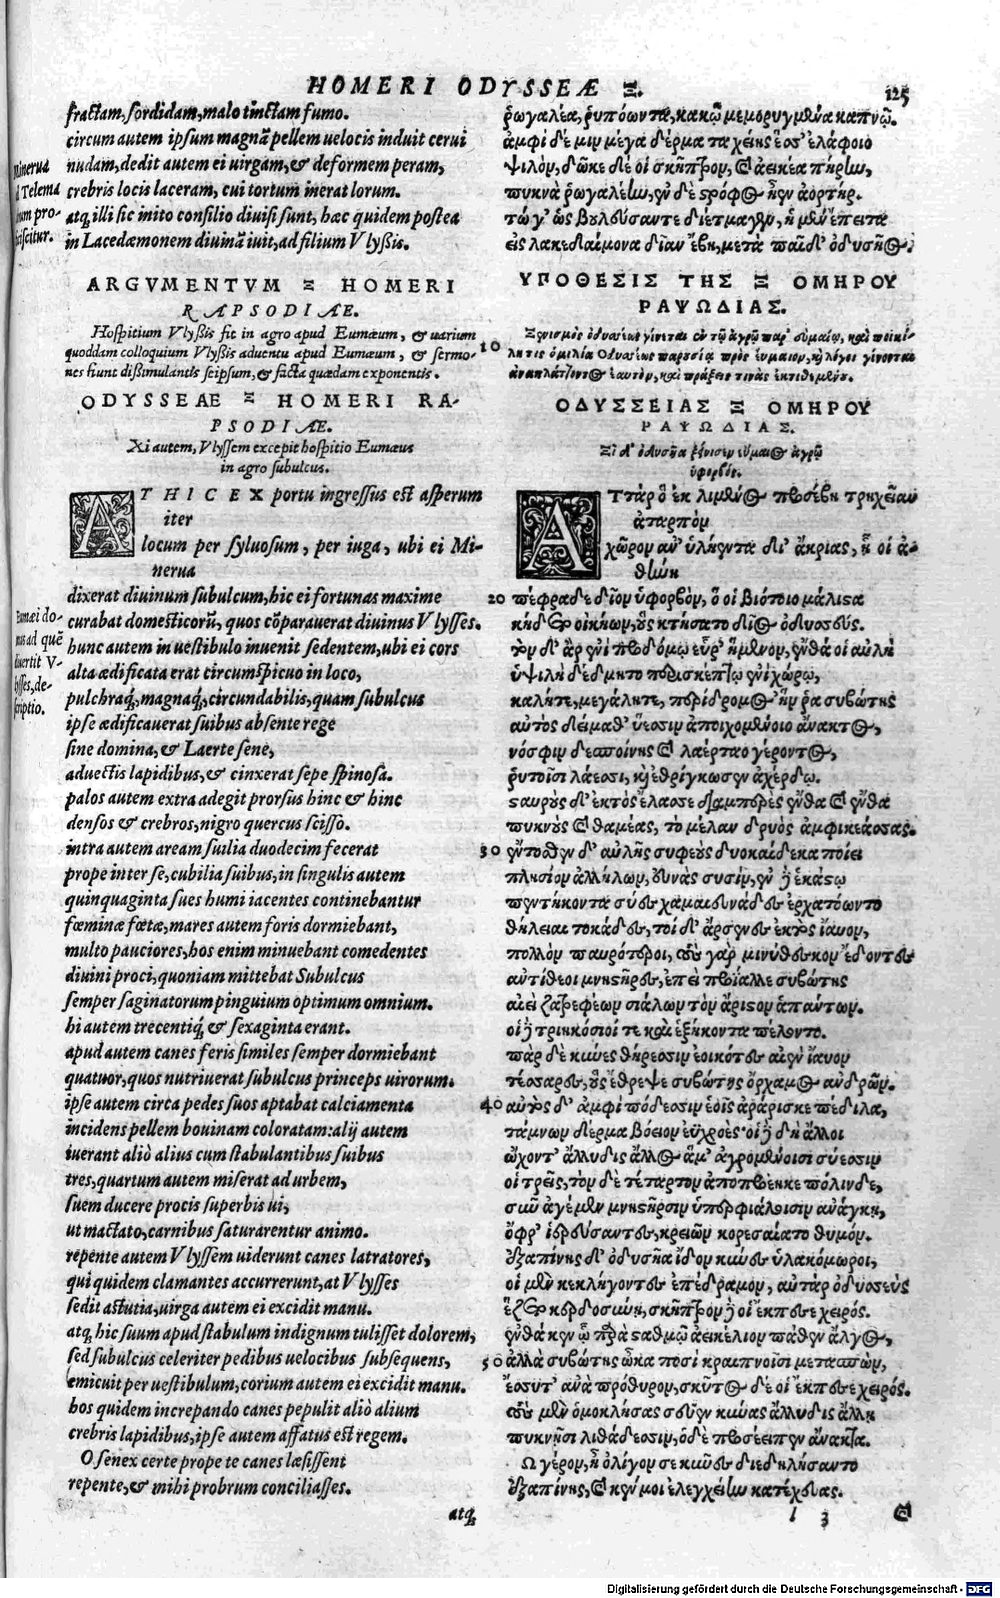 HOMERI ODYSSEÆ Ξ.
125
fractam, sordidam, malo tinctam fumo.
circum autem ipsum magnã pellem uelocis induit cerui
nudam, dedit autem ei uirgam, & deformem peram,
crebris locis laceram, cui tortum inerat lorum.
atq; illi sic inito consilio diuisi sunt, hæc quidem postea
in Lacedæmonem diuinã iuit, ad filium Vlyßis.
Minerua
d Telema
um pro-
ficiscitur.
ARGVMENTVM Ξ HOMERI
RAPSODIAE.
Hospitium Vlyßis fit in agro apud Eumæum, & uarium
quoddam colloquium Vlyßis aduentu apud Eumæum, & sermo-
nes fiunt dißimulantis seipsum, & facta quædam exponentis.
ODYSSEAE Ξ HOMERI RA-
PSODIAE.
Xi autem, Vlyssem excepit hospitio Eumæus
in agro subulcus.
AT HIC EX portu ingressus est asperum
iter
locum per syluosum, per iuga, ubi ei Mi-
nerua
dixerat diuinum subulcum, hic ei fortunas maxime
curabat domesticorũ, quos cõparauerat diuinus Vlysses.
hunc autem in uestibulo inuenit sedentem, ubi ei cors
alta ædificata erat circumspicuo in loco,
pulchraq;, magnaq;, circundabilis, quam subulcus
ipse ædificauerat suibus absente rege
sine domina, & Laerte sene,
aduectis lapidibus, & cinxerat sepe spinosa.
palos autem extra adegit prorsus hinc & hinc
densos & crebros, nigro quercus scisso.
intra autem aream suilia duodecim fecerat
prope inter se, cubilia suibus, in singulis autem
quinquaginta sues humi iacentes continebantur
fœminæ fœtæ, mares autem foris dormiebant,
multo pauciores, hos enim minuebant comedentes
diuini proci, quoniam mittebat Subulcus
semper saginatorum pinguium optimum omnium.
hi autem trecentiq; & sexaginta erant.
apud autem canes feris similes semper dormiebant
quatuor, quos nutriuerat subulcus princeps uirorum.
ipse autem circa pedes suos aptabat calciamenta
incidens pellem bouinam coloratam: alij autem
iuerant aliò alius cum stabulantibus suibus
tres, quartum autem miserat ad urbem,
suem ducere procis superbis ui,
ut mactato, carnibus saturarentur animo.
repente autem Vlyssem uiderunt canes latratores,
qui quidem clamantes accurrerunt, at Vlysses
sedit astutia, uirga autem ei excidit manu.
atq; hic suum apud stabulum indignum tulisset dolorem,
sed subulcus celeriter pedibus uelocibus subsequens,
emicuit per uestibulum, corium autem ei excidit manu.
hos quidem increpando canes pepulit aliò alium
crebris lapidibus, ipse autem affatus est regem.
O senex certe prope te canes læsissent
repente, & mihi probrum conciliasses.
atq;
Eumæi do-
mus ad quẽ
diuertit V-
lysses, de-
scriptio.
ῥωγαλέα, ῥυπόωντα, κακῷ μεμορυγμένα καπνῷ.
ἀμφὶ δέ μιν μέγα δέρμα ταχείης ἕσσ' ἐλάφοιο
ψιλόν, δῶκε δέ οἱ σκῆπτρον, καὶ ἀεικέα πήρην,
πυκνὰ ῥωγαλέην, ἐν δὲ στρόφος ἦεν ἀορτήρ.
τώ γ' ὣς βουλεύσαντε διέτμαγεν, ἡ μὲν ἔπειτα
εἰς λακεδαίμονα δῖαν ἔβη, μετὰ παῖδ' ὀδυσῆος.
ΥΠΟΘΕΣΙΣ ΤΗΣ Ξ ΟΜΗΡΟΥ
ΡΑΨΩΔΙΑΣ.
Ξενισμὸς ὀδυσσέως γίνεται ἐν τῷ ἀγρῷ παρ' εὐμαίῳ, καὶ ποικί-
10 λη τις ὁμιλία ὀδυσσέως παρουσίᾳ πρὸς εὔμαιον, καὶ λόγοι γίνονται
ἀναπλάττοντος ἑαυτὸν, καὶ πράξεις τινὰς ἐκτιθεμένου.
ΟΔΥΣΣΕΙΑΣ Ξ ΟΜΗΡΟΥ
ΡΑΨΩΔΙΑΣ.
Ξῖ δ' ὀδυσῆα ξένισεν εὔμαιος ἀγρῷ
ὑφορβός.
Αὐτὰρ ὃ ἐκ λιμένος προσέβη τρηχεῖαν
ἀταρπὸν
χῶρον ἀν' ὑλήεντα δι' ἄκριας, ᾗ οἱ ἀ-
θήνη
20 πέφραδε δῖον ὑφορβόν, ὅ οἱ βιότοιο μάλιστα
κήδετο οἰκήων, οὓς κτήσατο δῖος ὀδυσσεύς.
τὸν δ' ἄρ' ἐνὶ προδόμῳ εὗρ' ἥμενον, ἔνθά οἱ αὐλὴ
ὑψηλὴ δέδμητο περισκέπτῳ ἐνὶ χώρῳ,
καλήτε, μεγάλητε, περίδρομος ἥν ῥα συβώτης
αὐτὸς δείμαθ' ὕεσσιν ἀποιχομένοιο ἄνακτος,
νόσφιν δεσποίνης καὶ λαέρταο γέροντος,
ῥυτοῖσι λάεσσι, καὶ ἐθρίγκωσεν ἀχέρδῳ.
σταυροὺς δ' ἐκτὸς ἔλασσε διαμπερὲς ἔνθα καὶ ἔνθα
πυκνοὺς καὶ θαμέας, τὸ μέλαν δρυὸς ἀμφικεάσσας.
30 ἔντοσθεν δ' αὐλῆς συφεοὺς δυοκαίδεκα ποίει
πλησίον ἀλλήλων, εὐνὰς συσίν, ἐν δὲ ἑκάστῳ
πεντήκοντα σύες χαμαιευνάδες ἐρχατόωντο
θήλειαι τοκάδες, τοὶ δ' ἄρσενες ἐκτὸς ἴαυον,
πολλὸν παυρότεροι, τοὺς γὰρ μινύθεσκον ἔδοντες
ἀντίθεοι μνηστῆρες, ἐπεὶ προΐαλλε συβώτης
αἰεὶ ζατρεφέων σιάλων τὸν ἄριστον ἁπάντων.
οἱ δὲ τριηκόσιοί τε καὶ ἑξήκοντα πέλοντο.
πὰρ δὲ κύνες θήρεσσιν ἐοικότες αἰὲν ἴαυον
τέσσαρες, οὓς ἔθρεψε συβώτης ὄρχαμος ἀνδρῶν.
40 αὐτὸς δ' ἀμφὶ πόδεσσιν ἑοῖς ἀράρισκε πέδιλα,
τάμνων δέρμα βόειον ἐϋχροές· οἱ δὲ δὴ ἄλλοι
ᾤχοντ' ἄλλυδις ἄλλος ἅμ' ἀγρομένοισι σύεσσιν
οἱ τρεῖς, τὸν δὲ τέταρτον ἀποπροέηκε πόλινδε,
σῦν ἀγέμεν μνηστῆρσιν ὑπερφιάλοισιν ἀνάγκῃ,
ὄφρ' ἱερεύσαντες, κρειῶν κορεσαίατο θυμόν.
ἐξαπίνης δ' ὀδυσῆα ἴδον κύνες ὑλακόμωροι,
οἱ μὲν κεκλήγοντες ἐπέδραμον, αὐτὰρ ὀδυσσεὺς
ἕζετο κερδοσύνῃ, σκῆπτρον δέ οἱ ἔκπεσε χειρός.
ἔνθά κεν ᾧ παρὰ σταθμῷ ἀεικέλιον πάθεν ἄλγος,
50 ἀλλὰ συβώτης ὦκα ποσὶ κραιπνοῖσι μετασπὼν,
ἔσσυτ' ἀνὰ πρόθυρον, σκῦτος δέ οἱ ἔκπεσε χειρός.
τοὺς μὲν ὁμοκλήσας σεῦεν κύνας ἄλλυδις ἄλλῃ
πυκνῇσι λιθάδεσσιν, ὁ δὲ προσέειπεν ἄνακτα.
Ὦ γέρον, ἦ ὀλίγου σε κύνες διεδηλήσαντο
ἐξαπίνης, καί κέν μοι ἐλεγχείην κατέχευας.
l 3
καὶ
Digitalisierung gefördert durch die Deutsche Forschungsgemeinschaft - DFG